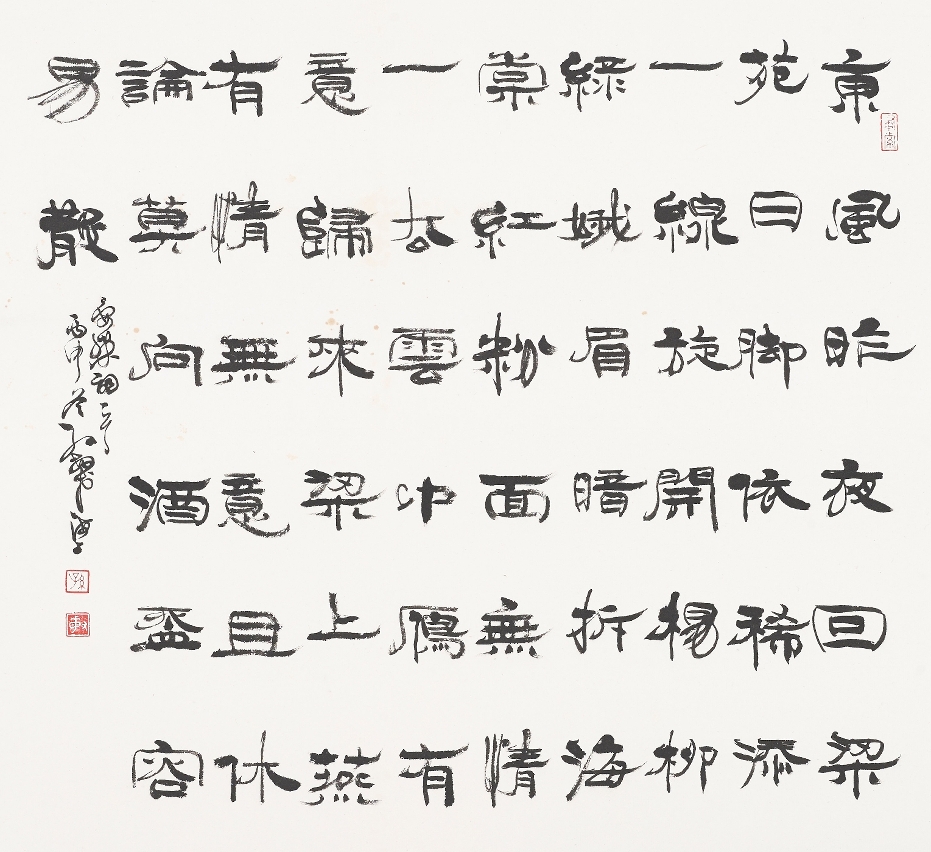 東風昨夜回梁
苑日脚依稀添
一線旋開楊柳
綠娥眉暗折海
棠紅粉面無情
一去雲中雁有
意歸來梁上燕
有情無意且休
論莫向酒盃容
易散
晏殊詞
丙申